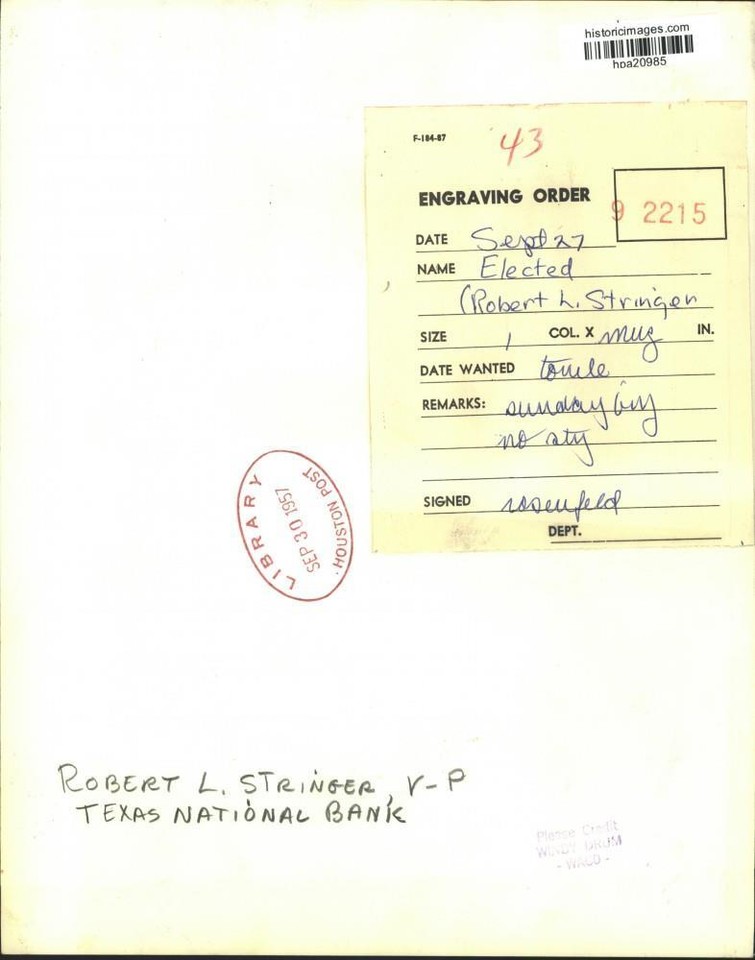 historicimages.com
hpa20985
F-184-87
43
ENGRAVING ORDER
9 2215
DATE Sept 27
NAME Elected
(Robert L. Stringer
SIZE 1 COL. X mug IN.
DATE WANTED
REMARKS: sunday
no sty
SIGNED rosenfeld
DEPT.
LIBRARY
SEP 30 1957
HOUSTON POST
ROBERT L. STRINGER, V-P
TEXAS NATIONAL BANK
Please Credit
WINDY DRUM
- WACO -